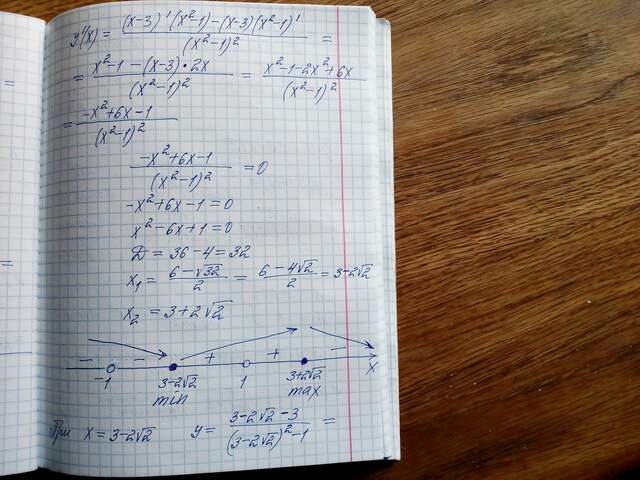 y'(x) = \frac{(x-3)'(x²-1)-(x-3)(x²-1)'}{(x²-1)²} =
= \frac{x²-1-(x-3)•2x}{(x²-1)²} = \frac{x²-1-2x²+6x}{(x²-1)²}
= \frac{-x²+6x-1}{(x²-1)²}
\frac{-x²+6x-1}{(x²-1)²} = 0
-x²+6x-1=0
x²-6x+1=0
D = 36-4=32
x₁ = \frac{6-√32}{2} = \frac{6-4√2}{2} = 3-2√2
x₂ = 3+2√2
- - + + -
-1 3-2√2 1 3+2√2 x
min max
При x = 3-2√2 y = \frac{3-2√2-3}{(3-2√2)²-1} =
=
=